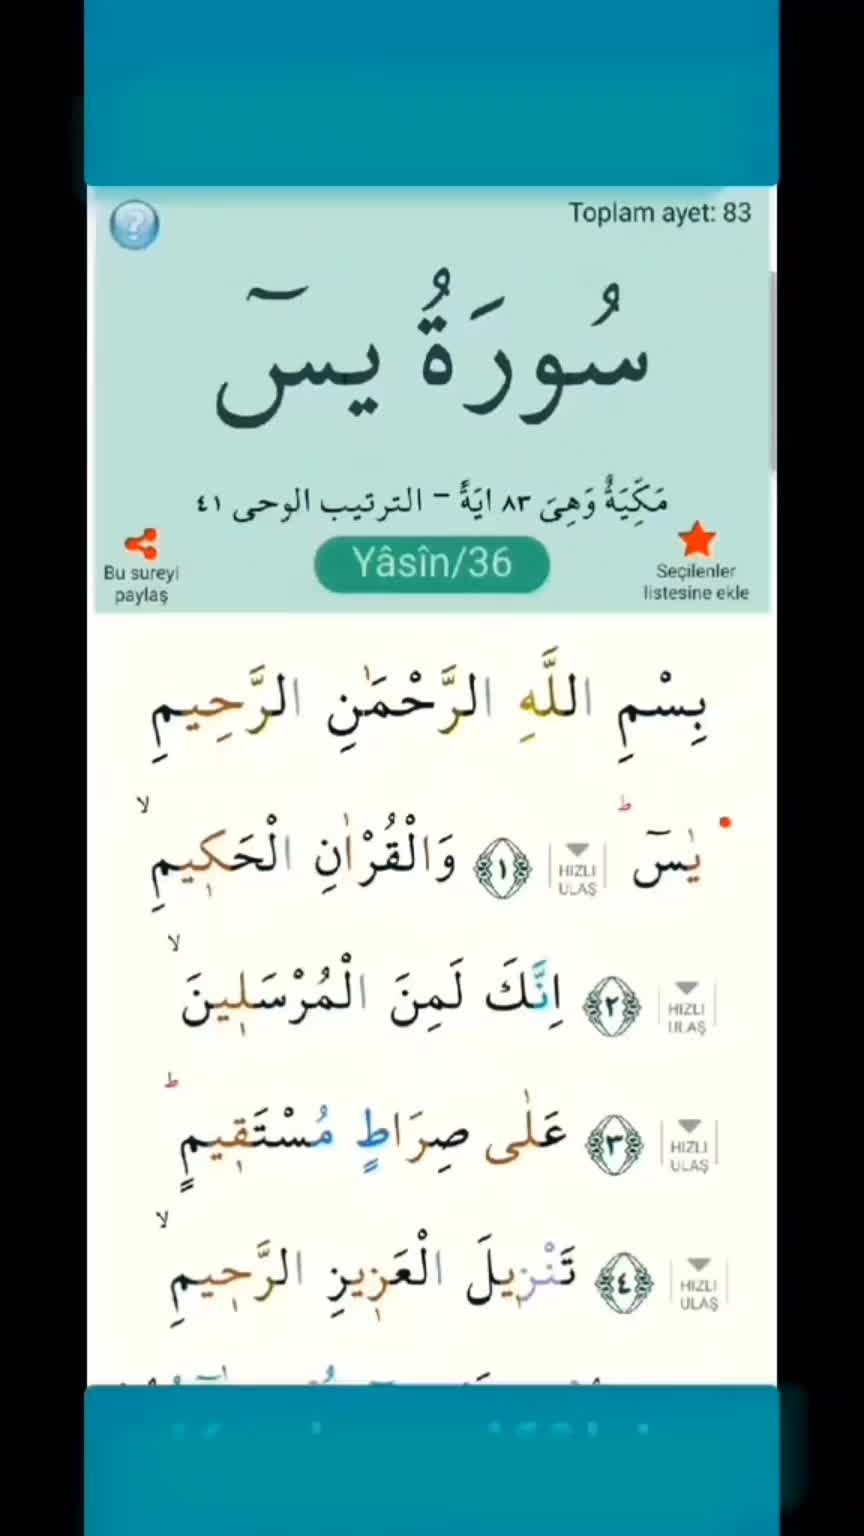 Toplam ayet: 83
سُورَةُ يسٓ
مَكِّيَةٌ وَهِىَ ٨٣ ايَةً – الترتيب الوحى ٤١
Bu sureyi
paylaş
Yâsîn/36
Seçilenler
listesine ekle
بِسْمِ اللَّهِ الرَّحْمٰنِ الرَّحِيمِ
يٰسٓ ۜط HIZLI ULAŞ ١ وَالْقُرْاٰنِ الْحَكٖيمِ لا
HIZLI ULAŞ ٢ اِنَّكَ لَمِنَ الْمُرْسَلٖينَ لا
HIZLI ULAŞ ٣ عَلٰى صِرَاطٍ مُسْتَقٖيمٍ ط
HIZLI ULAŞ ٤ تَنْزٖيلَ الْعَزٖيزِ الرَّحٖيمِ لا